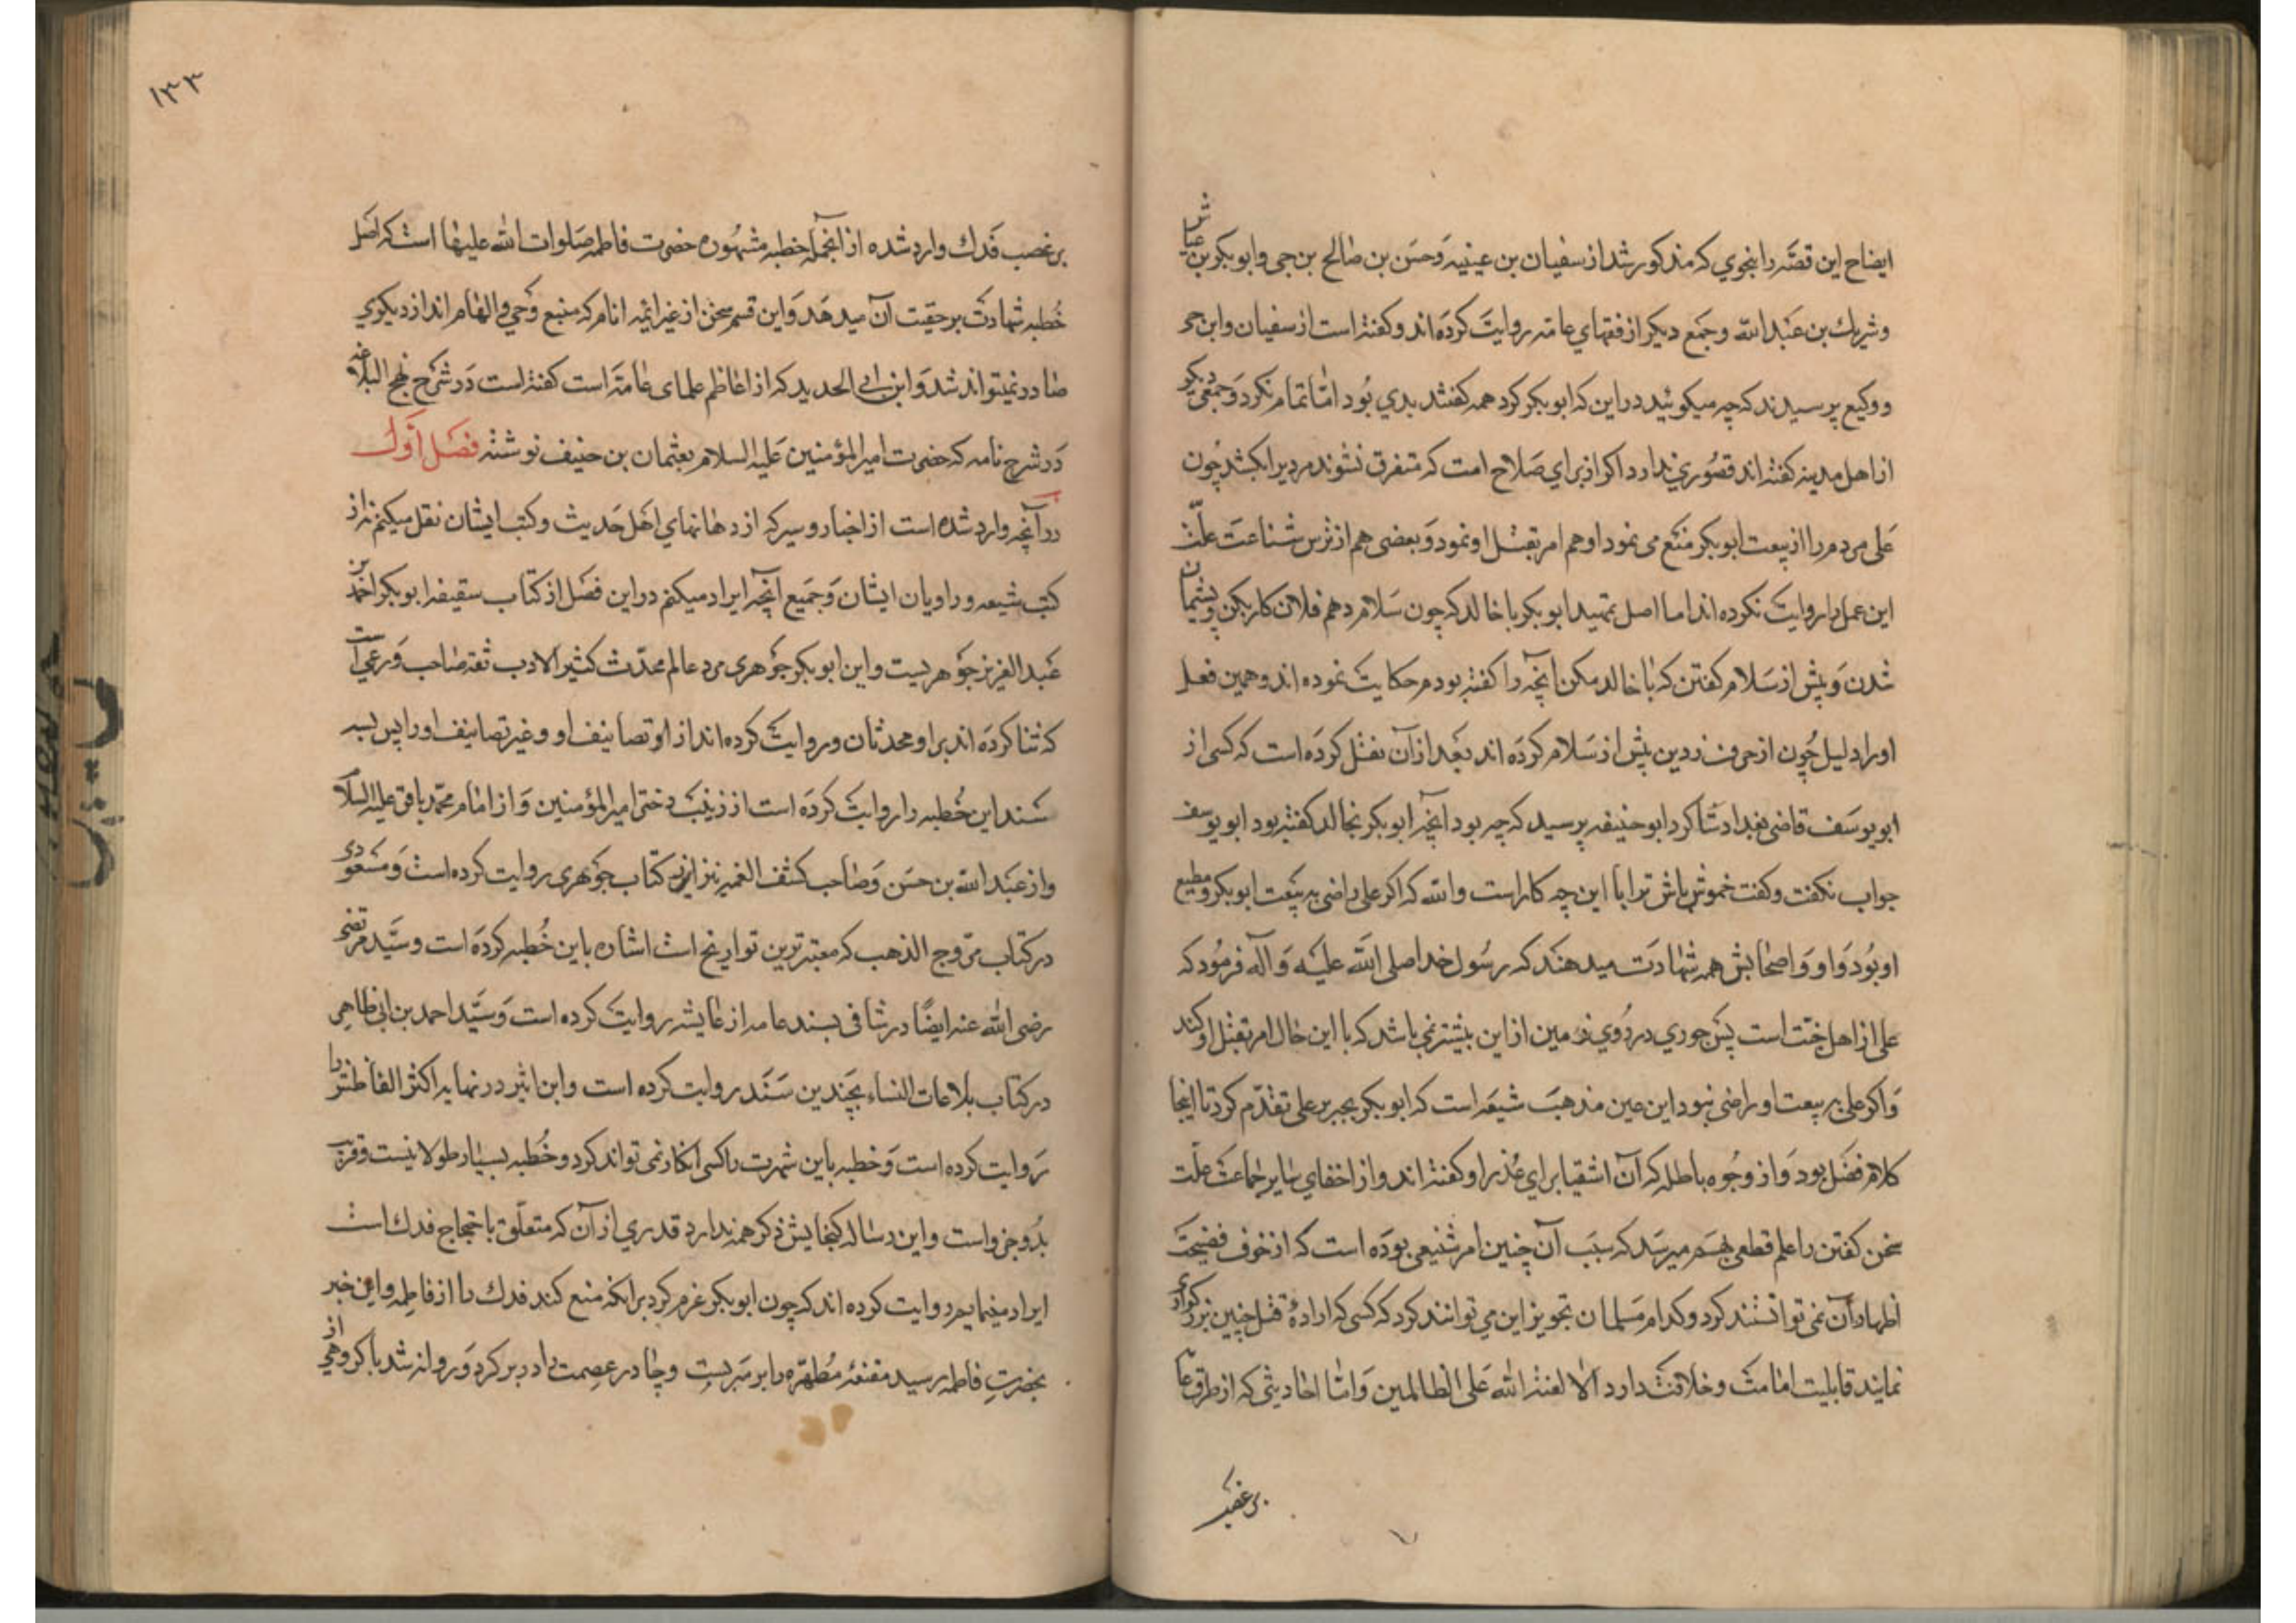 ایضاح این قصّه را بنحوي که مذکور شد از سفیان بن عیینه وحسن بن صالح بن حی وابوبکر بن عیاش
وشریك بن عبدالله وجمع دیکر از فقهاي عامه روایت کرده اند وکفته است از سفیان وابن حی
ووکیع پرسیدند که چه میکوئید در این که ابوبکر کرد همه کفتند بدي بود امّا تمام نکرد وجمعی دیکر
از اهل مدینه کفته اند قصوري ندارد اکر از براي صلاح امت که متفرق نشوند مردیرا بکشد چون
علی مردم را از بیعت ابوبکر منع می نمود او هم امر بقتل او نمود وبعضی هم از ترس شناعت علّت
این عمل را روایت نکرده اند اما اصل تمهید ابوبکر با خالد که چون سلام دهم فلان کار بکن وپشیمان
شدن وپیش از سلام کفتن که یا خالد مکن آنچه را کفته بودم حکایت نموده اند وهمین فعل
او را دلیل چون از حرف زدن پیش از سلام کرده اند بعد از آن نقل کرده است که کسی از
ابویوسف قاضی بغداد شاکرد ابوحنیفه پرسید که چه بود آنچه ابوبکر بخالد کفته بود ابویوسف
جواب نکفت وکفت خموش باش ترا با این چه کار است والله که اکر علی راضی به بیعت ابوبکر ومطیع
او بود واو واصحابش همه شهادت میدهند که رسول خدا صلی الله علیه وآله فرمود که
علی از اهل جنّت است پس جوري در روي زمین از این بیشتر نمی باشد که با این حال امر بقتل او کند
واکر علی به بیعت او راضی نبود این عین مذهب شیعه است که ابوبکر بجبر بر علی تقدّم کرد تا اینجا
کلام فضل بود واز وجوه باطله که آن اشقیا برای عذر او کفته اند واز اخفاي سایر جماعت علّت
سخن کفتن را علم قطعی بهم میرسد که سبب آن چنین امر شنیعی بوده است که از خوف فضیحت
اظهار آن نمی توانستند کرد وکدام مسلمان تجویز این می توانند کرد که کسی که ارادۀ قتل چنین بزرکواری
نمایند قابلیت امامت وخلافت دارد الا لعنة الله علی الظالمین وامّا احادیثی که از طرق عامّه
بر غصب
۱۳۳
بر غصب فدك وارد شده از آنجمله خطبه مشهوره حضرت فاطمه صلوات الله علیها است که اصل
خطبه شهادت بر حقیت آن میدهد واین قسم سخن از غیر ائمه انام که منبع وحي والهام اند از دیکري
صادر نمیتواند شد وابن ابي الحدید که از اعاظم علمای عامّه است کفته است در شرح نهج البلاغه
در شرح نامه که حضرت امیر المؤمنین علیه السلام بعثمان بن حنیف نوشته فصل اول
در آنچه وارد شده است از اخبار وسیر که از دهانهاي اهل حدیث وکتب ایشان نقل میکنم نه از
کتب شیعه وراویان ایشان وجمیع آنچه ایراد میکنم در این فصل از کتاب سقیفه ابوبکر احمد بن
عبد العزیز جوهریست واین ابوبکر جوهری مرد عالم محدّث کثیر الادب ثقه صاحب ورعی است
که ثنا کرده اند بر او محدثان وروایت کرده اند از او تصانیف او وغیر تصانیف او را پس بسه
سند این خطبه را روایت کرده است از زینب دختر امیر المؤمنین واز امام محمّد باقر علیه السلام
واز عبدالله بن حسن وصاحب کشف الغمه نیز از کتاب جوهری روایت کرده است ومسعودی
در کتاب مروج الذهب که معتبرترین تواریخ است اشاره باین خطبه کرده است وسیّد مرتضی
رضی الله عنه ایضًا در شافی بسند عامه از عایشه روایت کرده است وسیّد احمد بن ابی طاهر
در کتاب بلاغات النساء بچندین سند روایت کرده است وابن اثیر در نهایه اکثر الفاظش را
روایت کرده است وخطبه باین شهرت را کسی انکار نمی تواند کرد وخطبه بسیار طولانیست وقریب
بدو جزو است واین رساله کنجایش ذکر همه ندارد قدري از آن که متعلّق باحتجاج فدك است
ایراد مینمایم روایت کرده اند که چون ابوبکر عزم کرد برانکه منع کند فدك را از فاطمه واین خبر
بحضرت فاطمه رسید مقنعۀ مطهّره را بر سر بست وچادر عصمت را در بر کرد وروانه شد با کروهی از